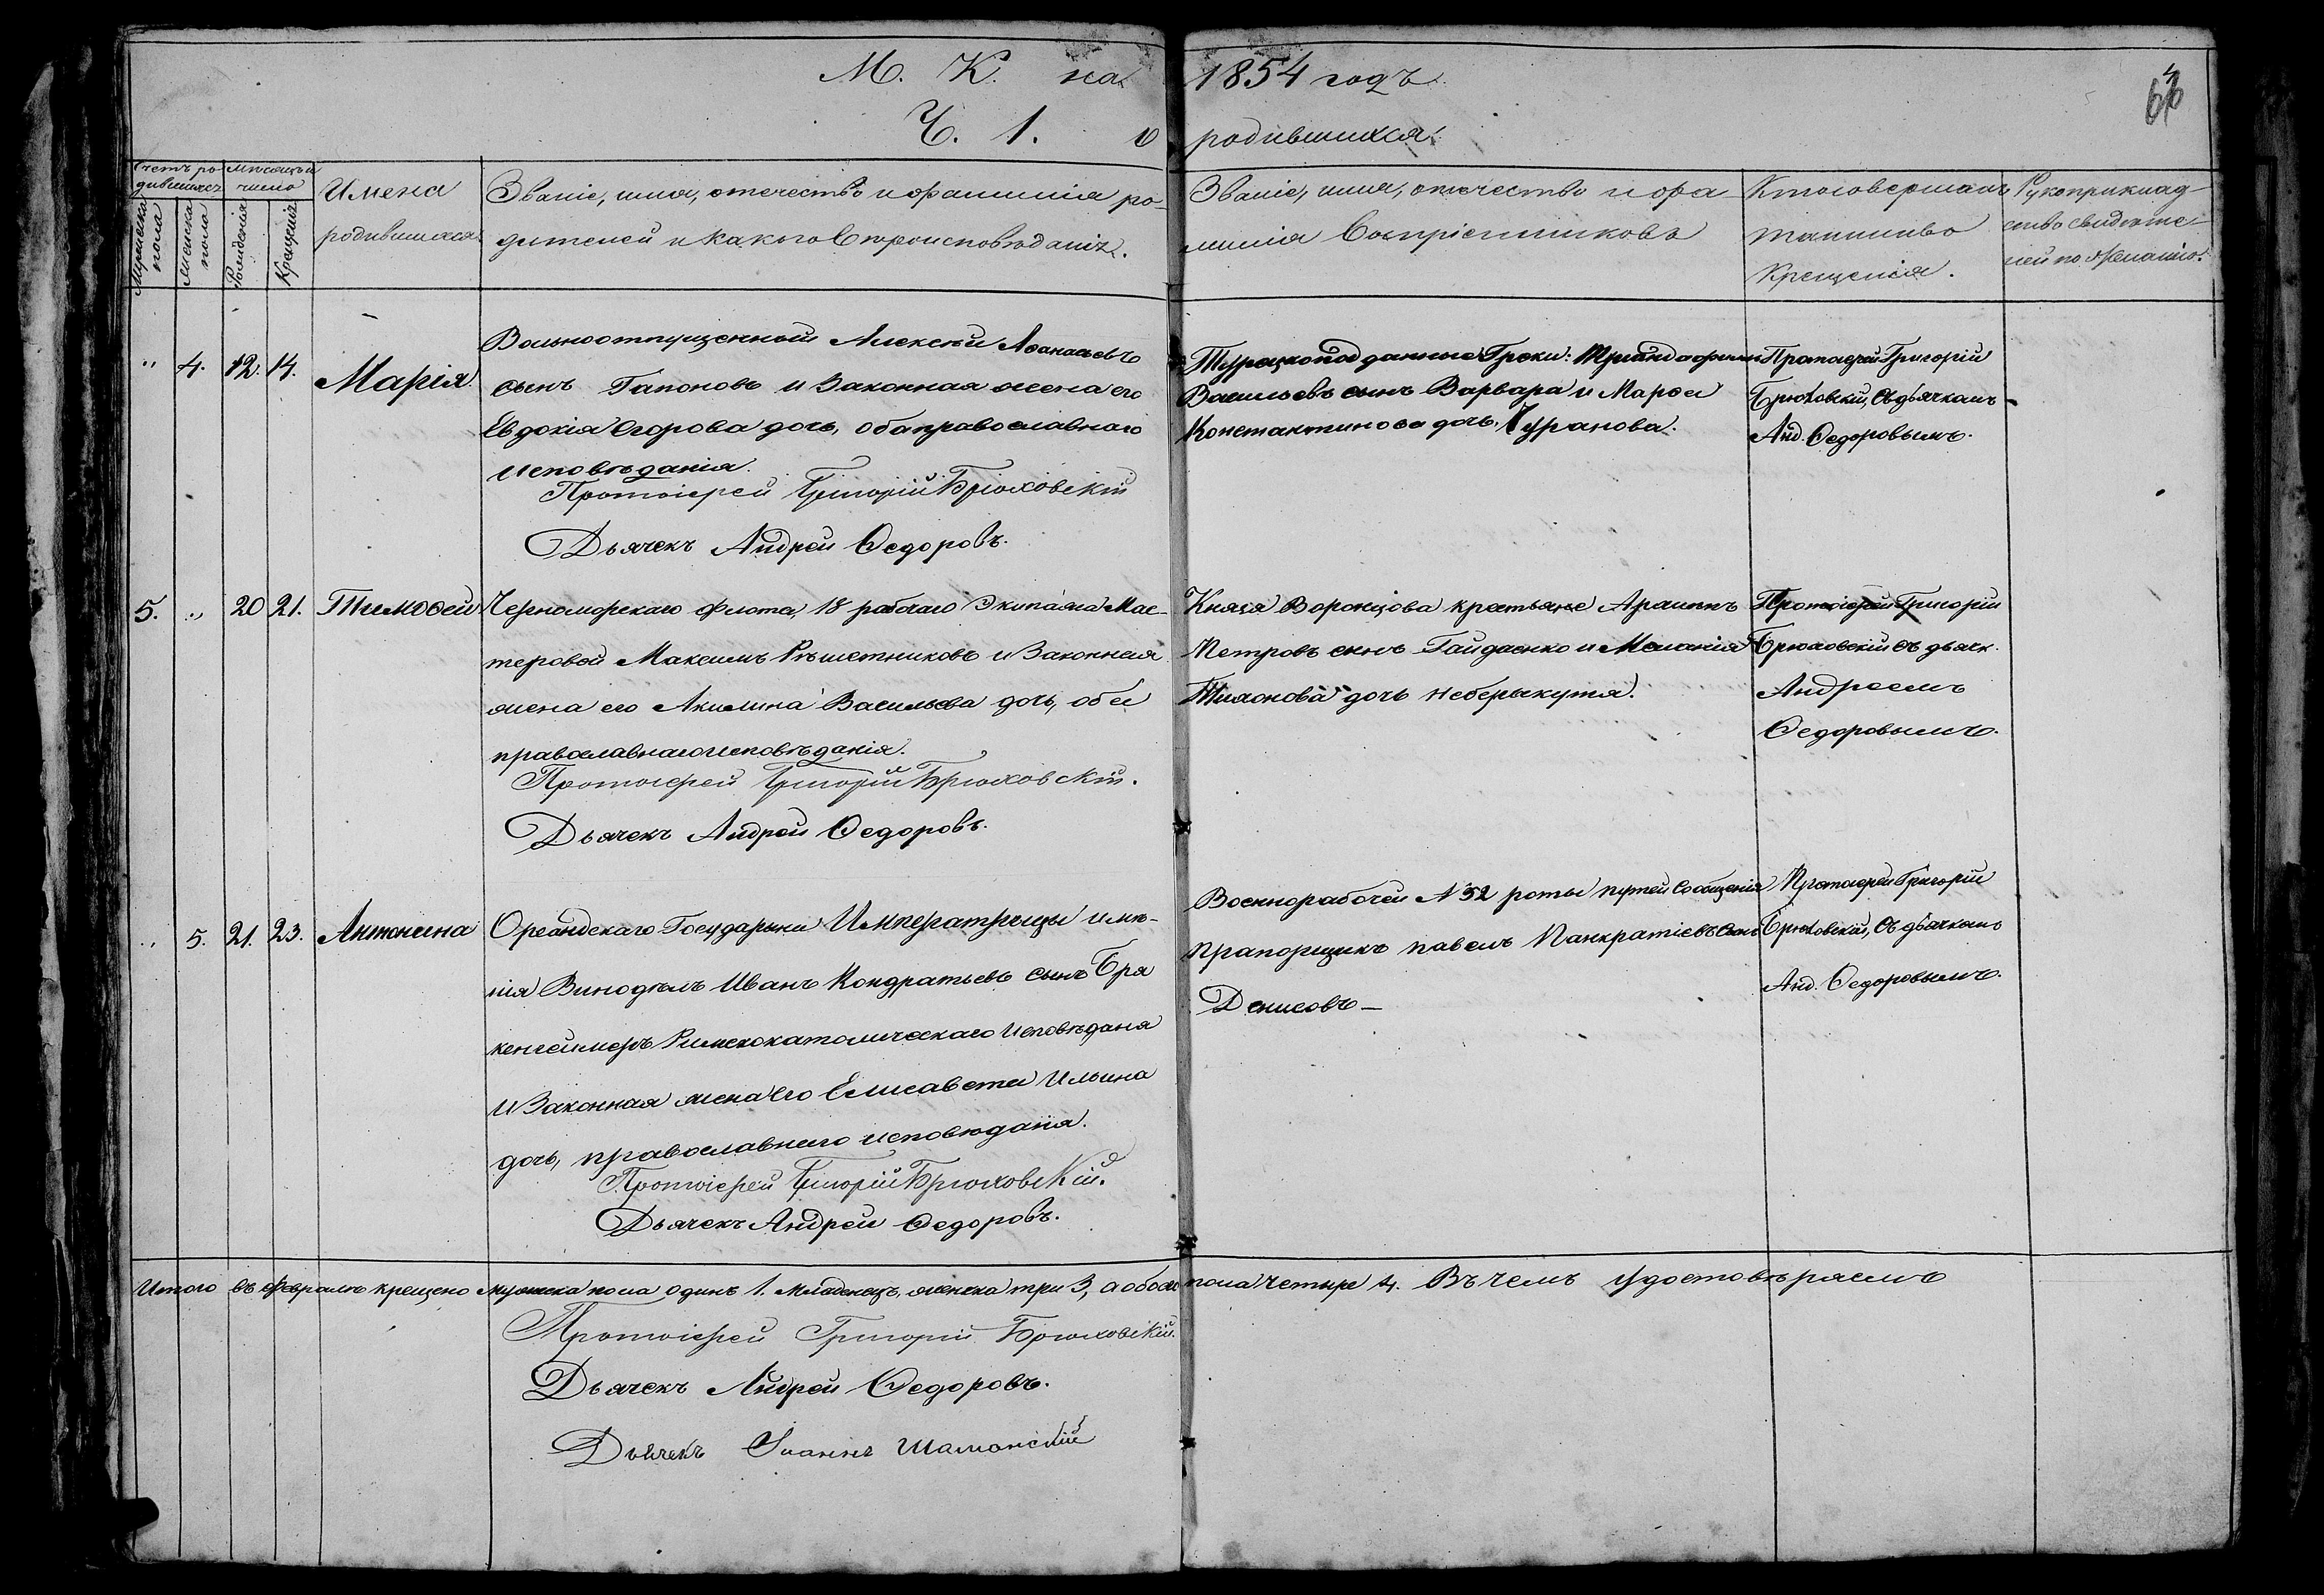 М. К. на 1854 годъ
Ч. 1. о родившихся.
66
Счетъ ро-
дившихся
Мѣсяцъ и
число
Мужеска
пола
Женска
пола
Рожденія
Крещенія
Имена
родившихся
Званіе, имя, отечество и фамилія ро-
дителей и какого вѣроисповѣданія.
Званіе, имя, отечество и фа-
милія Воспріемниковъ
Кто совершалъ
таинство
Крещенія.
Рукоприклад-
ство свидѣте-
лей по желанію.
" 4. 12. 14.
Марія
Вольноотпущенной Алексѣй Аѳанасьевъ
сынъ Гапоновъ и Законная жена его
Евдокія Егорова дочь, оба православнаго
исповѣданія.
Протоіерей Григорій Брюховскій
Дьячекъ Андрей Ѳедоровъ.
Турецкоподданные Греки:
Васильевъ сынъ Варвара и Марѳа
Константинова дочь, Чуранова.
Протоіерей Григорій
Брюховскій, съ дьячкомъ
Анд. Ѳедоровымъ.
5. " 20 21.
Тимоѳей
Черноморскаго флота, 18 рабочаго Экипажа Мас-
теровой Максимъ Рѣшетниковъ и Законная
жена его Акилина Васильева дочь, оба
православнаго исповѣданія.
Протоіерей Григорій Брюховскій.
Дьячекъ Андрей Ѳедоровъ.
Князя Воронцова крестьяне Архипъ
Петровъ сынъ Гайдаенко и Меланія
Тихонова дочь Неберыкутя.
Протоіерей Григорій
Брюховскій съ дьячк.
Андреемъ
Ѳедоровымъ.
" 5. 21. 23.
Антонина
Ореандскаго Государыни Императрицы имѣ-
нія Винодѣлъ Иванъ Кондратьевъ сынъ Бра
кенгеймеръ Римскокатолическаго Исповѣданя
и Законная жена Его Елисавета Ильина
дочь, православнаго исповѣданія.
Протоіерей Григорій Брюховскій.
Дьячекъ Андрей Ѳедоровъ.
Военнорабочей № 52 роты путей Сообщенія
Прапорщикъ павелъ Панкратіевъ Сынъ
Денисовъ —
Протоіерей Григорій
Брюховскій, съ дьячкомъ
Анд. Ѳедоровымъ.
Итого въ февралѣ крещено мужеска пола одинъ 1. младенецъ, женска три 3, а обоего пола четыре 4. Въ чемъ удостовѣряемъ
Протоіерей Григорій Брюховскій.
Дьячекъ Андрей Ѳедоровъ.
Дьячекъ Іоаннъ Шаманскій